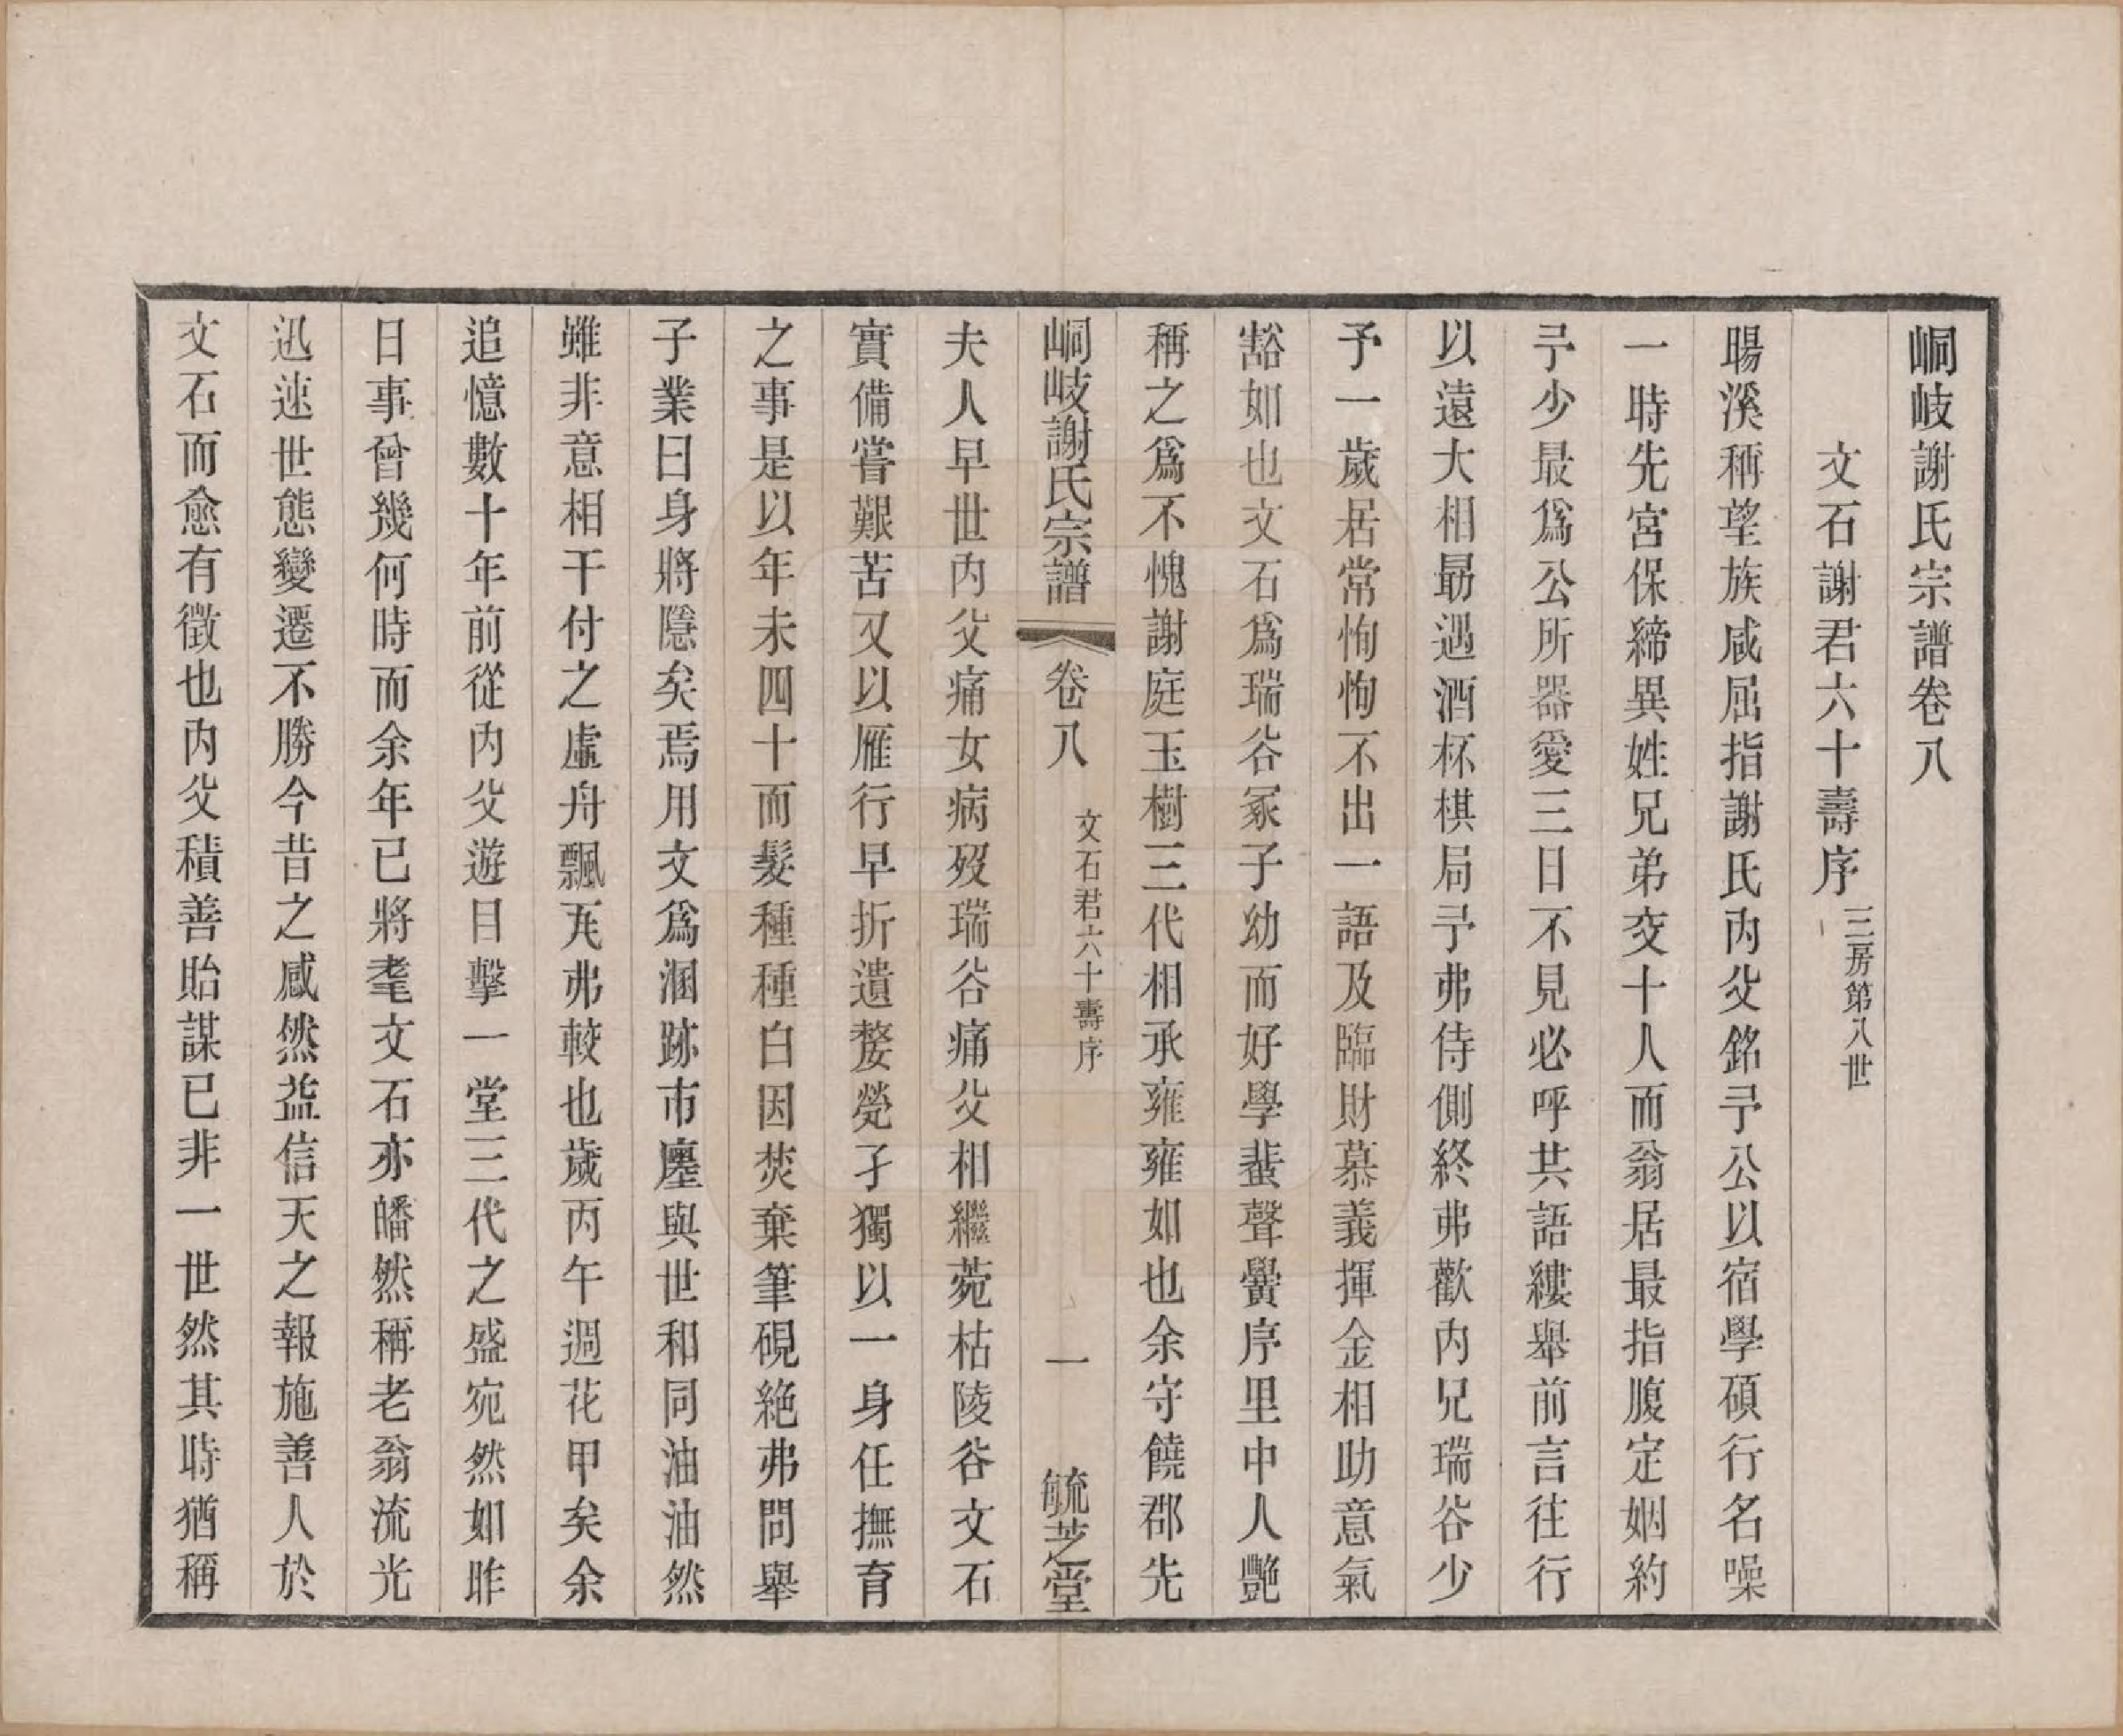 峒岐謝氏宗譜卷八
文石謝君六十壽序 三房第八世
暘溪稱望族咸屈指謝氏內父銘予公以宿學碩行名噪
一時先宮保締異姓兄弟交十人而翁居最指腹定姻約
予少最爲公所器愛三日不見必呼共語縷舉前言往行
以遠大相勗遇酒杯棋局予弗侍側終弗歡內兄瑞谷少
予一歲居常恂恂不出一語及臨財慕義揮金相助意氣
豁如也文石爲瑞谷冢子幼而好學蜚聲黌序里中人艷
稱之爲不愧謝庭玉樹三代相承雍雍如也余守饒郡先
峒岐謝氏宗譜 卷八 文石君六十壽序 一 毓芝堂
夫人早世內父痛女病歿瑞谷痛父相繼菀枯陵谷文石
實備嘗艱苦又以雁行早折遺嫠煢孑獨以一身任撫育
之事是以年未四十而髮種種白因焚棄筆硯絶弗問舉
子業曰身將隱矣焉用文爲溷跡市廛與世和同油油然
雖非意相干付之虛舟飄瓦弗較也歲丙午週花甲矣余
追憶數十年前從內父遊目擊一堂三代之盛宛然如昨
日事曾幾何時而余年已將耄文石亦皤然稱老翁流光
迅速世態變遷不勝今昔之感然益信天之報施善人於
文石而愈有徵也內父積善貽謀已非一世然其時猶稱